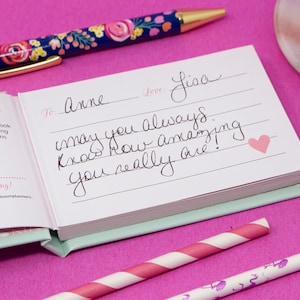 To: Anne Love, Lisa
may you always
know how amazing
you really are.